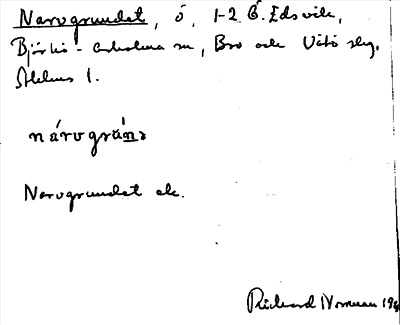 Narvgrundet, ö, 1-2 Ö. Edsvik,
Björkö-Arholma sn, Bro och Vätö slg.
Sthlms l.
nárvgrún̲ə
Narvgrundet ek.
Richard Norman 19